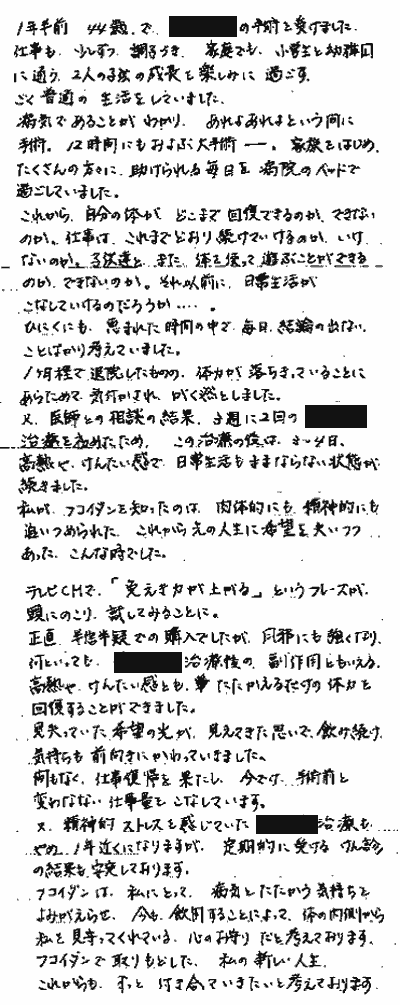 1年半前 44歳で、 の手術を受けました。
仕事も、少しずつ 調子づき、 家庭でも、小学生と幼稚園
に通う 2人の子供の成長を楽しみに 過ごす、
ごく普通の 生活をしていました。
病気であることが わかり、 あれよあれよという間に
手術。 12時間にもおよぶ大手術 ー。 家族をはじめ、
たくさんの方々に、助けられる毎日を 病院のベッドで
過ごしていました。
これから、自分の体が どこまで回復できるのか、できない
のか。仕事は、これまでどおり続けていけるのか、いけ
ないのか。子供達と、また、体を使って遊ぶことができる
のか、できないのか。それ以前に、日常生活が
こなしていけるのだろうか‥‥。
ひにくにも、恵まれた時間の中で、毎日、結論の出ない、
ことばかり考えていました。
1ヶ月程で退院したものの、体力が 落ちきっていることに
あらためて 気付かされ、がく然としました。
又、医師との相談の結果、3週に2回の
治療を始めたため、 この治療の後は、3〜4日、
高熱や、けんたい感で 日常生活もままならない状態が
続きました。
私が、フコイダンを知ったのは、肉体的にも、精神的にも
追いつめられた、これから先の人生に希望を失いつつ
あった、こんな時でした。
テレビCMで、「免えき力が上がる」というフレーズが、
頭にのこり、試してみることに。
正直、半信半疑での購入でしたが、風邪にも強くなり、
何といっても、 治療後の 副作用ともいえる、
高熱や、けんたい感とも、 たたかえるだけの 体力を
回復することができました。
見失っていた 希望の光が、見えてきた思いで、飲み続け、
気持ちも 前向きにかわっていきました。
何もなく、仕事復帰を果たし、今では、手術前と
変わなない 仕事量を こなしています。
又、精神的 ストレスを感じていた 治療も
やめ、1年近くになりますが、定期的に受ける けん診
の結果も、安定しております。
フコイダンは、私にとって、 病気とたたかう 気持ちを
よみがえらせ、今も、飲用することによって、体の内側から
私を 見守ってくれている、心のお守り だと考えております。
フコイダンで 取りもどした、 私の 新しい人生、
これからも、ずっと 付き合っていきたいと考えております。